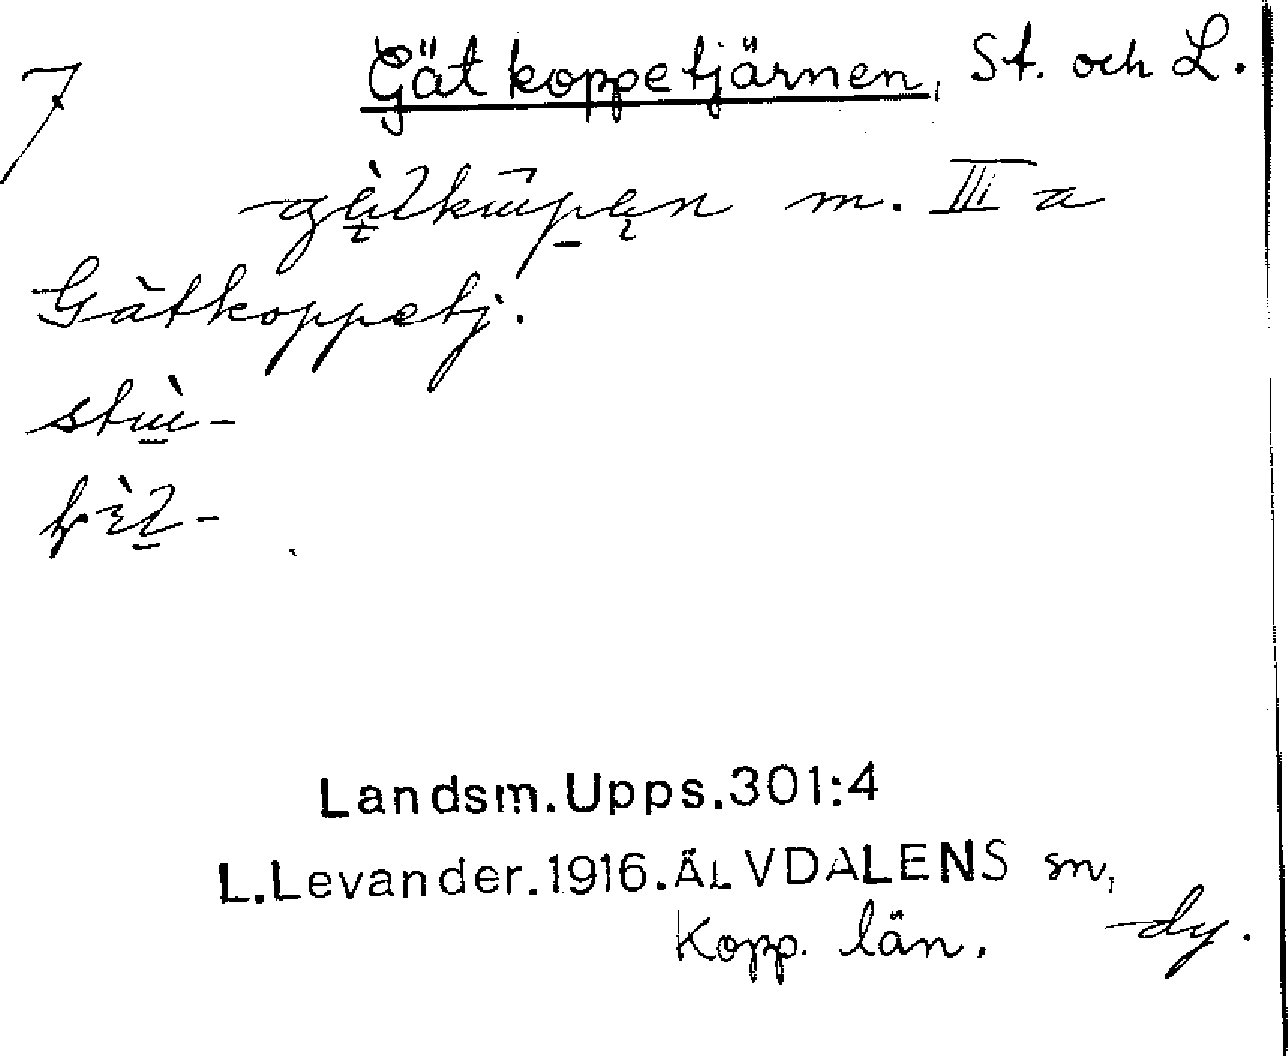 7
Gätkoppetjärnen, St. och L.
m. III a
Gätkoppetj.
Landsm.Upps.301:4
L.Levander.1916.ÄLVDALENS sn,
Kopp. län.
dy.